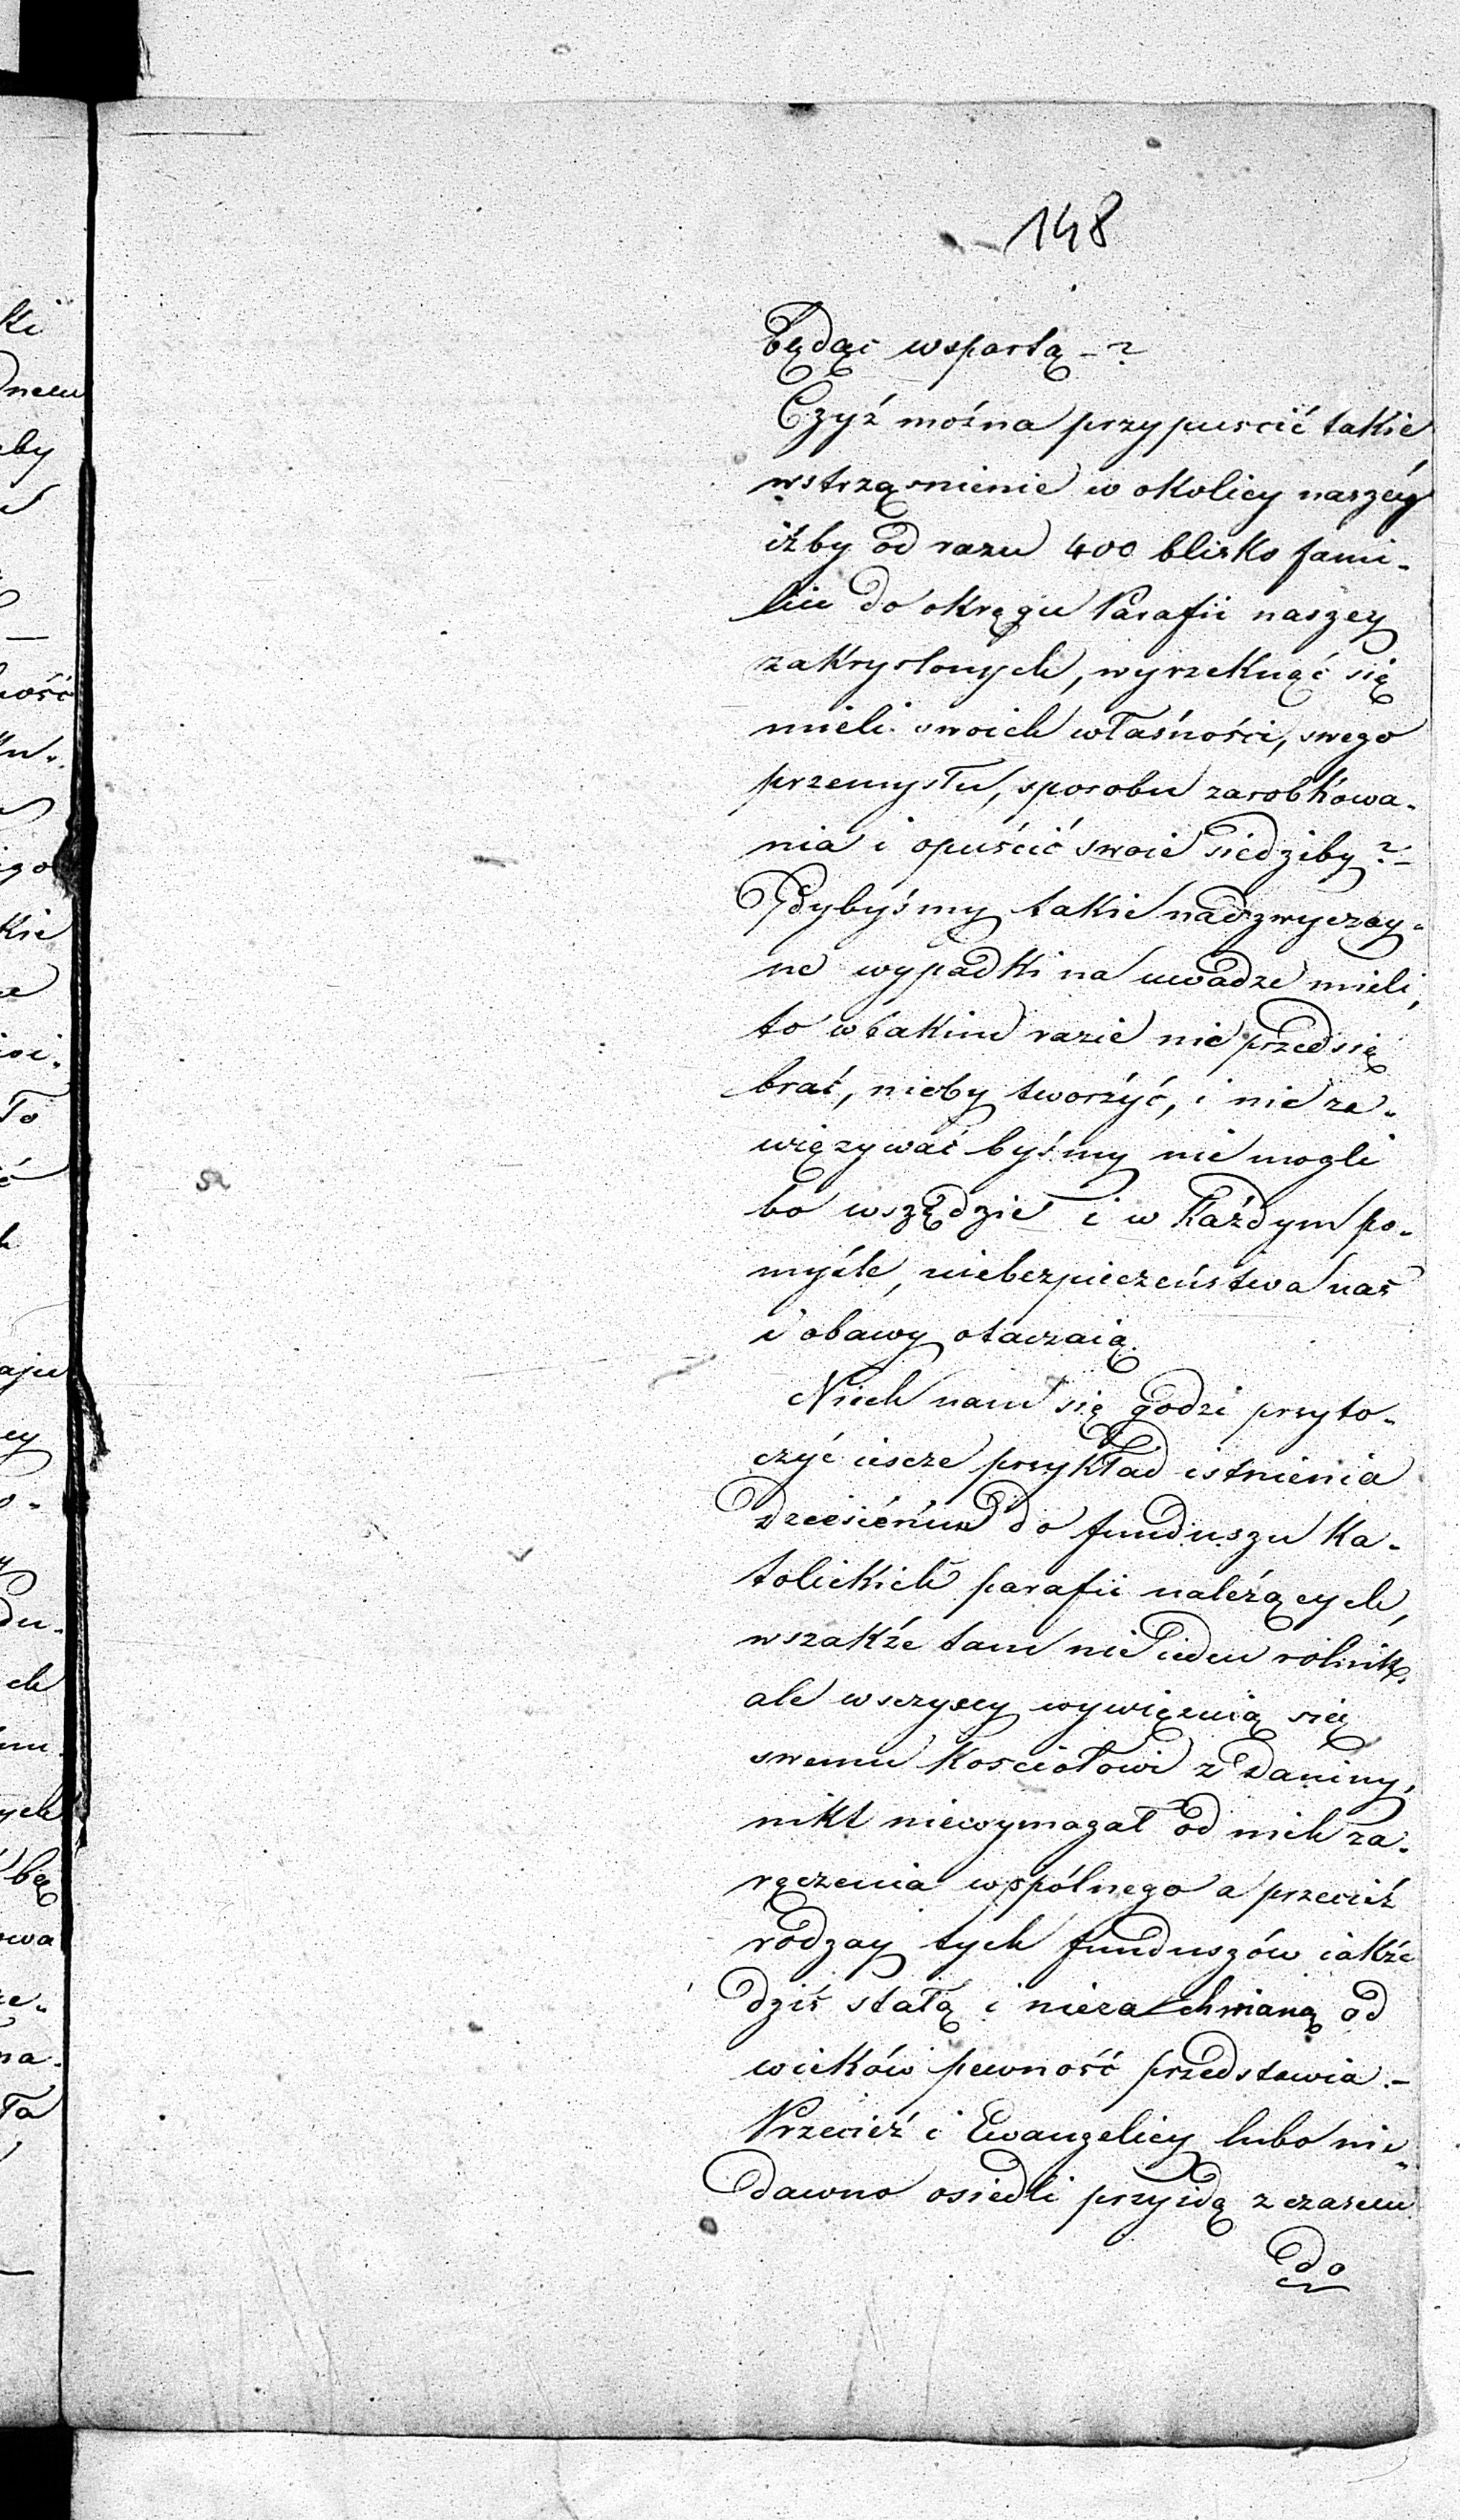 148
będąc wspartą -?
Czyż można przypuscić takie
wstrząsnienie w okolicy naszéy
iżby od razu 400 blisko fami-
lii do okręgu Parafii naszey
zakryslonych, wyrzeknąć się
mieli swoich własności, swego
przemysłu, sposobu zarobkowa-
nia i opuścić swoie siedziby ?-
Gdybyśmy takie nadzwyczay-
ne wypadki na uwadze mieli,
to w takim razie nic przedsię
brać, nicby tworzyć, i nic za-
więzywać byśmy nie mogli
bo wszędzie i w każdym po-
myśle, niebezpieczeństwa nas
i obawy otaczaią.
Niech nam się godzi przyto-
czyć iescze przykład istnienia
do funduszu Ka-
tolickich parafii należących,
wszakże tam nie ieden rolnik,
ale wszyscy wywięzuią się
swemu Kosciołowi z daniny,
nikt niewymagał od nich za-
ręczenia wspólnego a przecież
rodzay tych funduszów iakże
dziś stałą i niezachwianą od
wieków pewność przedstawia.-
Przecież i Ewangelicy lubo nie-
dawno osiedli przyidą z czasem
do
ki
dnem
eby
ność
igo
kie
ło
aju
ey
du-
ch
ych
bę
owa
na-
ła